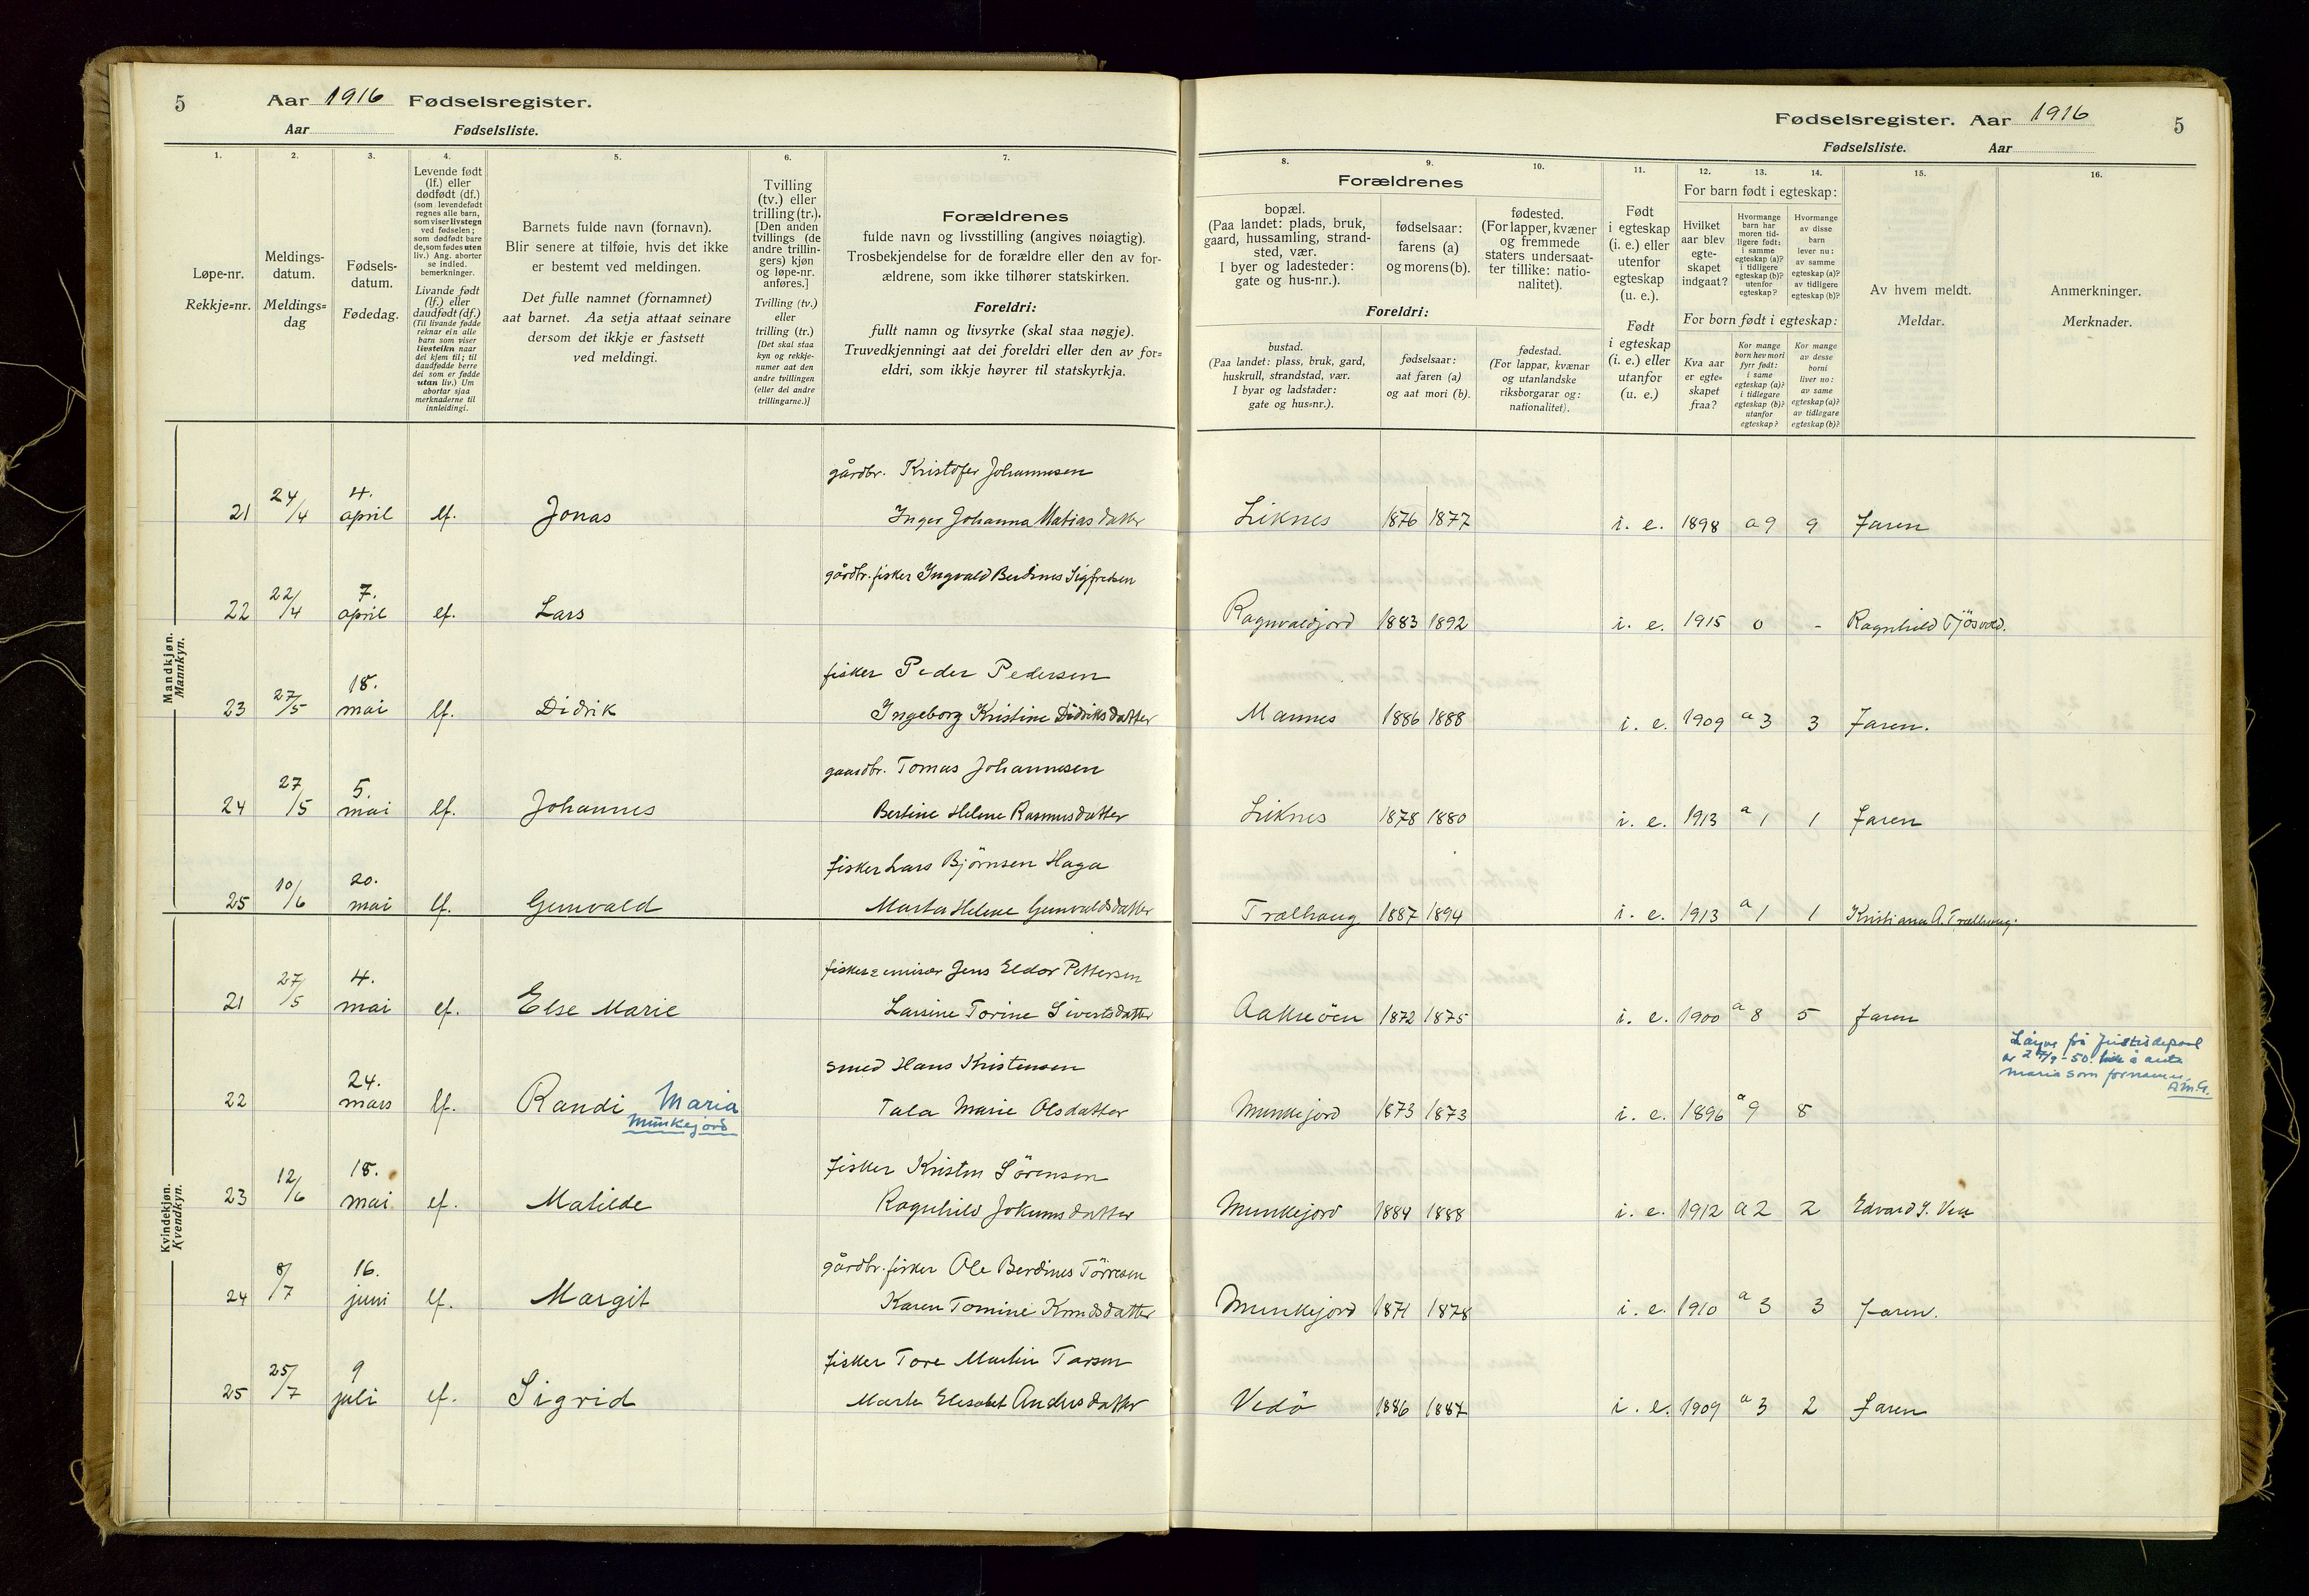 5 Aar 1916 Fødselsregister.
Aar Fødselsliste.
1. 2. 3. 4. 5. 6. 7.
Løpe-nr.
Rekkje=nr.
Meldings-
datum.
Meldings=
dag
Fødsels-
datum.
Fødedag.
Levende født
(lf.) eller
dødfødt (df.)
(som levendefødt
regnes alle barn,
som viser livstegn
ved fødselen;
som dødfødt bare
de, som fødes uten
liv.) Ang. aborter
se indled.
bemerkninger.
Livande født
(lf.) eller
daudfødt (df.)
(Til livande fødde
reknar ein alle
barn som viser
livsteikn naar
dei kjem til; til
daudfødde berre
dei som er fødde
utan liv.) Um
abortar sjaa
merknaderne til
innleidingi.
Barnets fulde navn (fornavn).
Blir senere at tilføie, hvis det ikke
er bestemt ved meldingen.
Det fulle namnet (fornamnet)
aat barnet. Aa setja attaat seinare
dersom det ikkje er fastsett
ved meldingi.
Tvilling
(tv.) eller
trilling (tr.).
[Den anden
tvillings (de
andre trillin-
gers) kjøn
og løpe-nr.
anføres.]
Tvilling (tv.)
eller
trilling (tr.)
[Det skal staa
kyn og rekkje-
numer aat den
andre tvillingen
(eller dei andre
trillingarne.)]
Forældrenes
fulde navn og livsstilling (angives nøiagtig).
Trosbekjendelse for de forældre eller den av for-
ældrene, som ikke tilhører statskirken.
Foreldri:
fullt namn og livsyrke (skal staa nøgje).
Truvedkjenningi aat dei foreldri eller den av for=
eldri, som ikkje høyrer til statskyrkja.
Mandkjøn.
Mannkyn.
gårdbr. Kristofer Johannesen
21 24/4 4. april lf. Jonas Inger Johanna Matiasdatter
gårdbr. fisker Ingvald Berdines Sigfredsen
22 22/4 7. april lf. Lars
fisker Peder Pedersen
23 27/5 18. mai lf. Didrik Ingeborg Kristine Didriksdatter
gaardbr. Tomas Johannesen
24 27/5 5. mai lf. Johannes Bertine Helene Rasmusdatter
fisker Lars Bjørnsen Haga
25 10/6 20. mai lf. Gunvald Marta Helene Gunvaldsdatter
Kvindekjøn.
Kvendkyn.
fisker emisær Jens Eldor Pettersen
21 27/5 4. mai lf. Else Marie Larsine Torine Sivertsdatter
smed Hans Kristensen
22 24. mars lf. Randi Maria Tala Marie Olsdatter
Munkejord
fisker Kristen Sörensen
23 12/6 18. mai lf. Matilde Ragnhild Jokumsdatter
gårdbr. fisker Ole Berdines Törresen
24 8/7 16. juni lf. Margit Karen Tomine Knudsdatter
fisker Tore Martin Tarsen
25 25/7 9 juli lf. Sigrid Marta Elisabet Andersdatter
Fødselsregister. Aar 1916 5
Fødselsliste. Aar
8. 9. 10. 11. 12. 13. 14. 15. 16.
Forældrenes
bopæl.
(Paa landet: plads, bruk,
gaard, hussamling, strand-
sted, vær.
I byer og ladesteder:
gate og hus-nr.).
fødselsaar:
farens (a)
og morens (b).
fødested.
(For lapper, kvæner
og fremmede
staters undersaat-
ter tillike: natio-
nalitet).
Foreldri:
bustad.
(Paa landet: plass, bruk, gard,
huskrull, strandstad, vær.
I byar og ladstader:
gate og hus=nr.).
fødselsaar:
aat faren (a)
og aat mori (b).
fødestad.
(For lappar, kvænar
og utanlandske
riksborgarar og:
nationalitet).
Født
i egteskap
(i. e.) eller
utenfor
egteskap
(u. e.).
Født
i egteskap
(i. e.) eller
utanfor
(u. e.)
For barn født i egteskap:
Hvilket
aar blev
egte-
skapet
indgaat?
Hvormange
barn har
moren tid-
ligere født:
i samme
egteskap (a)?
i tidligere
egteskap (b)?
utenfor
egteskap?
Hvormange
av disse
barn
lever nu:
av samme
egteskap (a)?
av tidligere
egteskap (b)?
For born født i egteskap:
Kva aar
er egte=
skapet
fraa?
Kor mange
born hev mori
fyrr født:
i same
egteskap (a)?
i tidlegare
egteskap (b)?
utanfor
egteskap?
Kor mange
av desse
borni
liver no:
av same
egteskap (a)?
av tidlegare
egteskap (b)?
Av hvem meldt.
Meldar.
Anmerkninger.
Merknader.
Liknes 1876 1877 i. e. 1898 a 9 9 Faren
Ragnvaldjord 1883 1892 i. e. 1915 0 - Ragnhild Tjösvold.
Mannes 1886 1888 i. e. 1909 a 3 3 Faren.
Liknes 1878 1880 i. e. 1913 a 1 1 Faren
Trælhaug 1887 1894 i. e. 1913 a 1 1 Kristiana A. Trælhaug.
Aakreöen 1872 1875 i. e. 1900 a 8 5 Faren
Munkejord 1873 1873 i. e. 1896 a 9 8
maria som fornamn.
A.M.G.
Munkejord 1884 1888 i. e. 1912 a 2 2
Munkejord 1871 1878 i. e. 1910 a 3 3 Faren.
Vedö 1886 1887 i. e. 1909 a 3 2 Faren